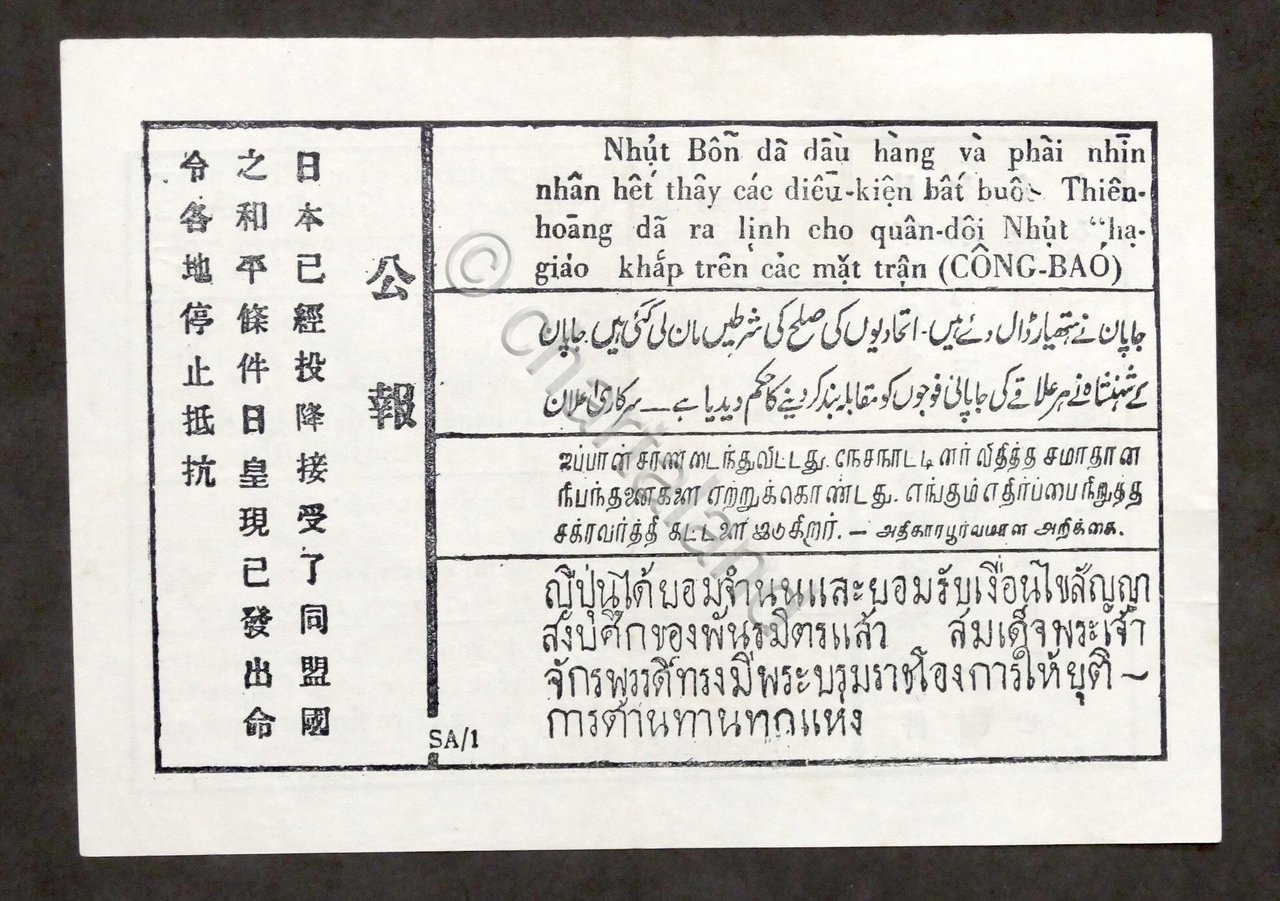 公報
日本已經投降接受了同盟國
之和平條件日皇現已發出命
令各地停止抵抗
Nhụt Bổn dã dầu hàng và phải nhìn
nhận hết thảy các diều-kiện bắt buộc Thiên-
hoàng dã ra lịnh cho quân-dội Nhụt “hạ-
giáo khắp trên các mặt trận (CÔNG-BÁO)
جاپان نے ہتھیار ڈال دئے ہیں۔ اتحادیوں کی صلح کی شرطیں مان لی گئی ہیں۔ جاپان
کے شہنشاہ نے ہر علاقے کی جاپانی فوجوں کو مقابلہ بند کر دینے کا حکم دیدیا ہے — سرکاری اعلان
ஜப்பான் சரணடைந்துவிட்டது. நேசநாட்டினர் விதித்த சமாதான
நிபந்தனைகளை ஏற்றுக்கொண்டது. எங்கும் எதிர்ப்பை நிறுத்த
சக்ரவர்த்தி கட்டளை இடுகிறார். — அதிகாரபூர்வமான அறிக்கை.
ญี่ปุ่นได้ยอมจำนนและยอมรับเงื่อนไขสัญญา
สงบศึกของพันธมิตรแล้ว สมเด็จพระเจ้า
จักรพรรดิ์ทรงมีพระบรมราชโองการให้ยุติ –
การต้านทานทุกแห่ง
SA/1
© chartaland